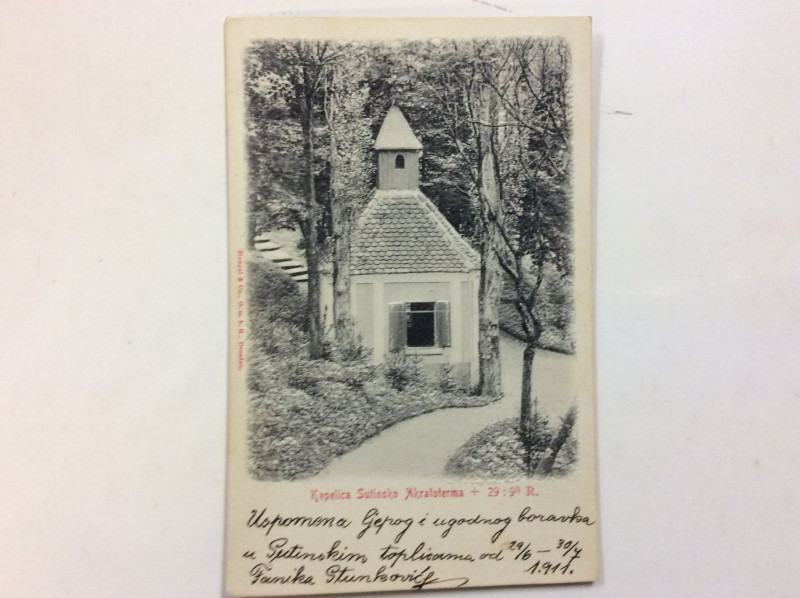 Stengel & Co., G.m.b.H., Dresden.
Kapelica Sutinsko Akratoterma + 29:9⁰ R.
Uspomena ljepog i ugodnog boravka
u Sutinskim toplicama od 29/6 — 30/7
Fanika Stunković 1.911.